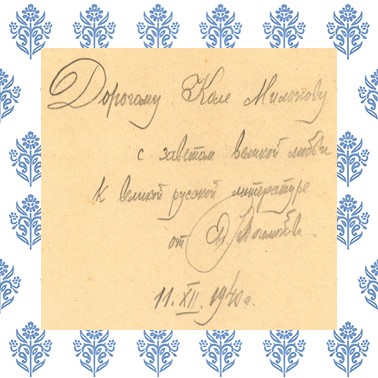 Дорогому Коле Милонову
с заветом великой любви
к великой русской литературе
от
11. XII. 1940 г.